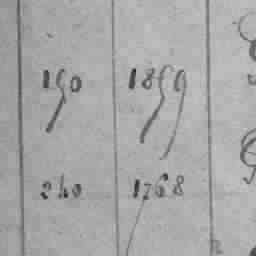 150 1859
240 1768